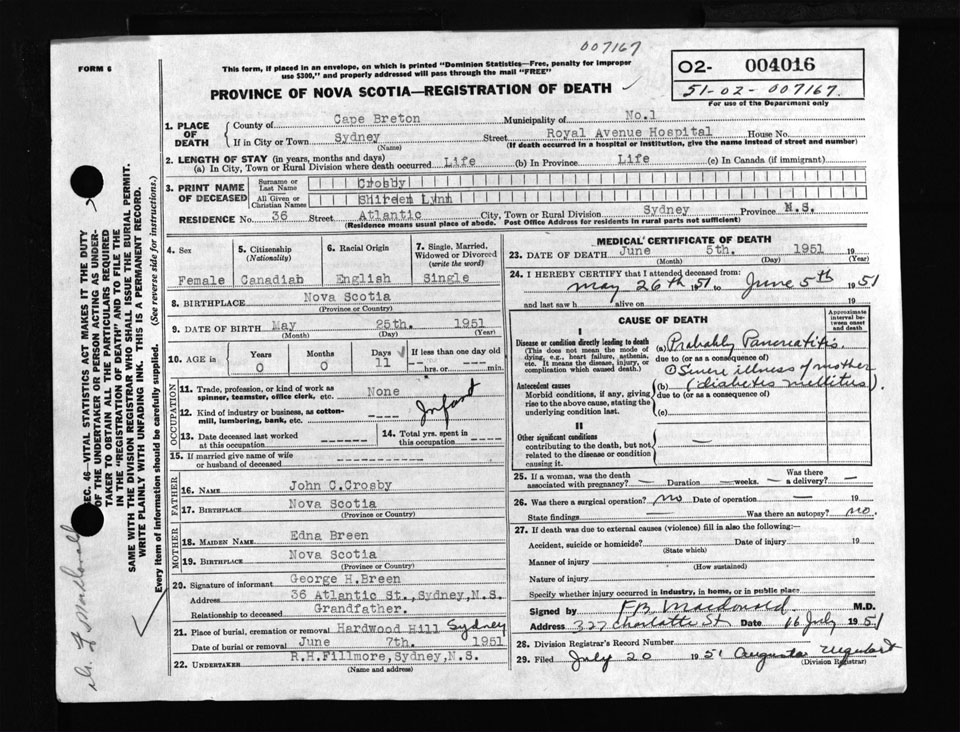 007167
FORM 6
This form, if placed in an envelope, on which is printed "Dominion Statistics—Free, penalty for improper
use $300," and properly addressed will pass through the mail "FREE"
O2- 004016
51-02-007167.
For use of the Department only
PROVINCE OF NOVA SCOTIA—REGISTRATION OF DEATH
1. PLACE OF DEATH
County of Cape Breton Municipality of No.1
If in City or Town Sydney Street Royal Avenue Hospital House No.
(Name) (If death occurred in a hospital or institution, give the name instead of street and number)
2. LENGTH OF STAY (in years, months and days)
(a) In City, Town or Rural Division where death occurred Life (b) In Province Life (c) In Canada (if immigrant)
3. PRINT NAME OF DECEASED
Surname or Last Name Crosby
All Given or Christian Names Shireen Lynn
RESIDENCE No. 36 Street Atlantic City, Town or Rural Division Sydney Province N.S.
(Residence means usual place of abode. Post Office Address for residents in rural parts not sufficient)
4. Sex
Female
5. Citizenship (Nationality)
Canadian
6. Racial Origin
English
7. Single, Married, Widowed or Divorced (write the word)
Single
8. BIRTHPLACE Nova Scotia
(Province or Country)
9. DATE OF BIRTH May 25th. 1951
(Month) (Day) (Year)
10. AGE in Years 0 Months 0 Days 11 If less than one day old
hrs. or min.
OCCUPATION
11. Trade, profession, or kind of work as
spinner, teamster, office clerk, etc. None
12. Kind of industry or business, as cotton-
mill, lumbering, bank, etc. Infant
13. Date deceased last worked
at this occupation
14. Total yrs. spent in
this occupation
15. If married give name of wife
or husband of deceased
FATHER
16. NAME John C.Crosby
17. BIRTHPLACE Nova Scotia
(Province or Country)
MOTHER
18. MAIDEN NAME Edna Breen
19. BIRTHPLACE Nova Scotia
(Province or Country)
20. Signature of informant George H.Breen
Address 36 Atlantic St.,Sydney,N.S.
Relationship to deceased Grandfather.
21. Place of burial, cremation or removal Hardwood Hill Sydney
Date of burial or removal June 7th. 1951
22. UNDERTAKER R.H.Fillmore,Sydney,N.S.
(Name and address)
MEDICAL CERTIFICATE OF DEATH
23. DATE OF DEATH June 5th. 1951 19
(Month) (Day) (Year)
24. I HEREBY CERTIFY that I attended deceased from:
May 26th 1951 to June 5th 1951
and last saw h alive on 19
CAUSE OF DEATH
Approximate interval between onset and death
I
Disease or condition directly leading to death
(This does not mean the mode of dying, e.g., heart failure, asthenia, etc. It means the disease, injury, or complication which caused death.)
(a) Probably Pancreatitis.
due to (or as a consequence of)
Severe illness of mother
Antecedent causes
Morbid conditions, if any, giving rise to the above cause, stating the underlying condition last.
(b) (diabetes mellitus).
due to (or as a consequence of)
(c)
II
Other significant conditions
contributing to the death, but not related to the disease or condition causing it.
25. If a woman, was the death
associated with pregnancy? — Duration —weeks. Was there a delivery? —
26. Was there a surgical operation? no Date of operation — 19
State findings — Was there an autopsy? no.
27. If death was due to external causes (violence) fill in also the following:—
Accident, suicide or homicide? Date of injury 19
(State which)
Manner of injury
(How sustained)
Nature of injury
Specify whether injury occurred in industry, in home, or in public place
Signed by F.B. Macdonald. M.D.
Address 327 Charlotte St Date 16 July 1951
28. Division Registrar's Record Number
29. Filed July 20 1951 Augusta Urquhart
(Division Registrar)
SEC. 46—VITAL STATISTICS ACT MAKES IT THE DUTY
OF THE UNDERTAKER OR PERSON ACTING AS UNDER-
TAKER TO OBTAIN ALL THE PARTICULARS REQUIRED
IN THE "REGISTRATION OF DEATH" AND TO FILE THE
SAME WITH THE DIVISION REGISTRAR WHO SHALL ISSUE THE BURIAL PERMIT.
WRITE PLAINLY WITH UNFADING INK. THIS IS A PERMANENT RECORD.
Every item of information should be carefully supplied. (See reverse side for instructions.)
Macdonald